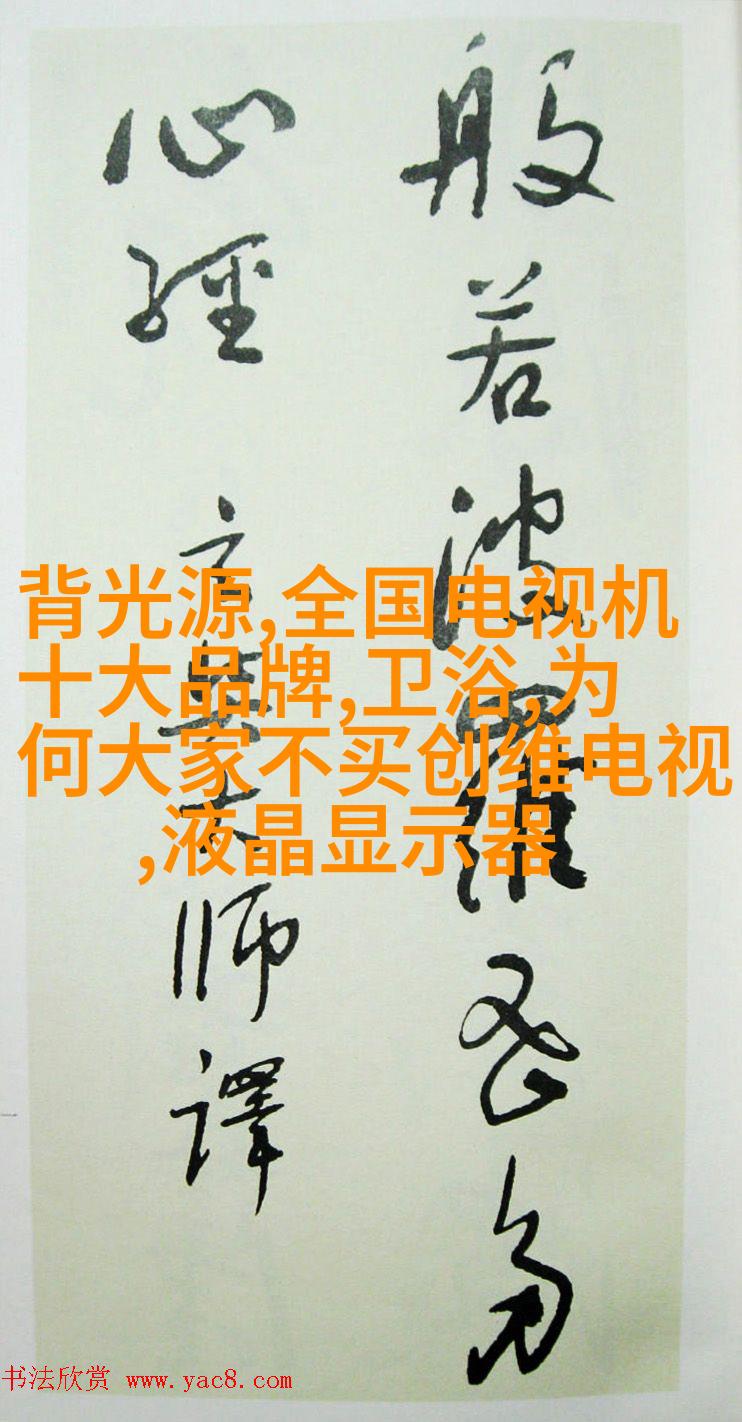 般若波羅蜜多
心經 玄奘大師譯
背光源,全国电视机
十大品牌,卫浴,为
何大家不买创维电视
,液晶显示器
书法欣赏 www.yac8.com